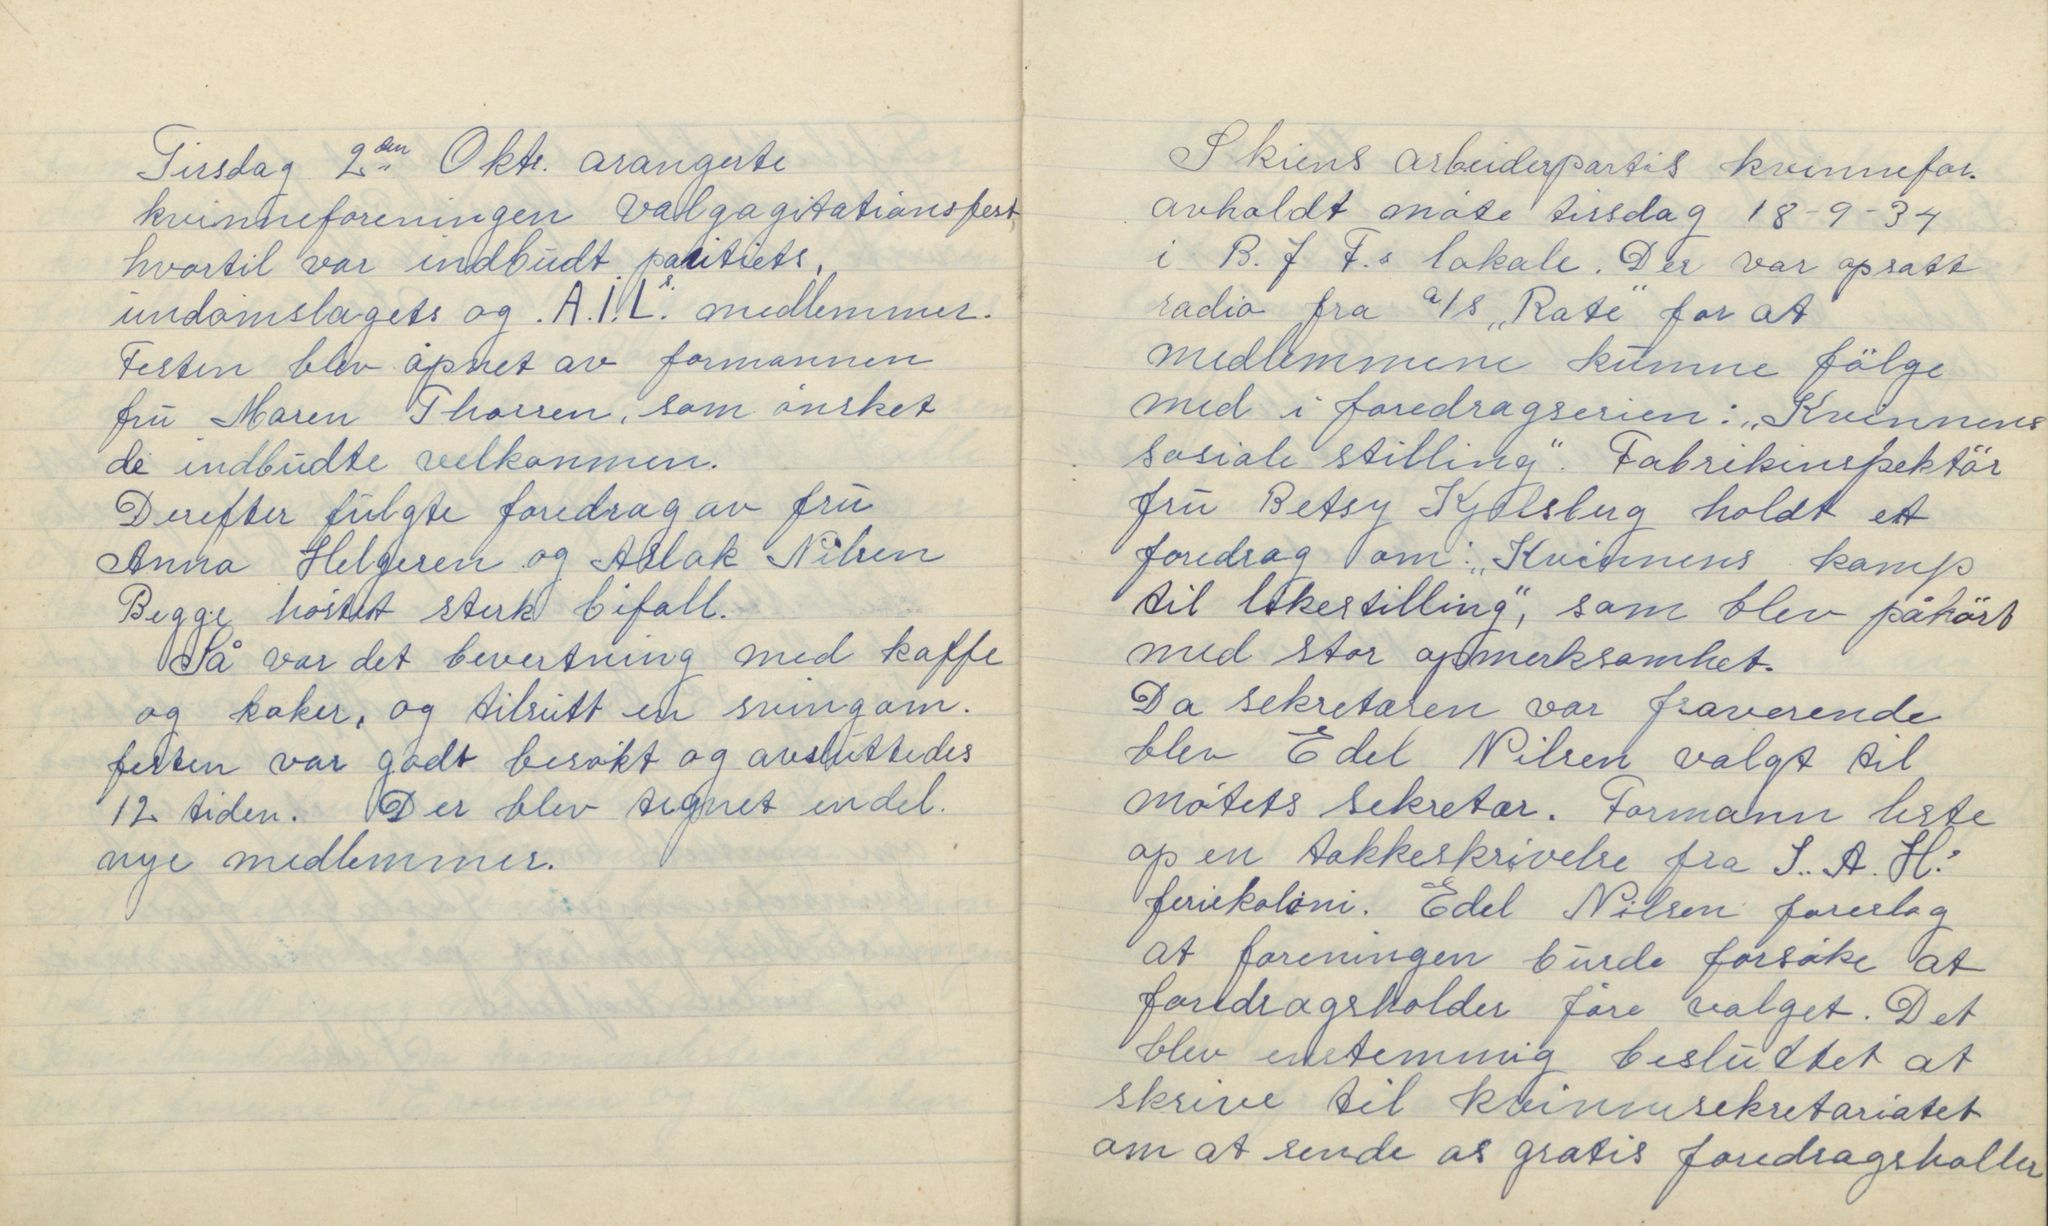 Tirsdag 2den Oktr. arangerte
kvinneforeningen valgagitationsfest,
hvortil var indbudt paritiets,
undomslagets og A.I.L.s. medlemmer.
Festen blev åpnet av formannen
fru Maren Thorsen, som ønsket
de indbudte velkommen.
Derefter fulgte foredrag av fru
Anna Helgesen og Aslak Nilsen
Begge høstet sterk bifall.
Så var det bevertning med kaffe
og kaker, og tilsutt en svingom.
festen var godt besøkt og avsluttedes
12 tiden. Der blev tegnet en del.
nye medlemmer.
Skiens arbeiderpartis kvinnefor.
avholdt møte tirsdag 18-9-34
i B. J F.s lokale. Der var opsatt
radio fra a/s „Rate“ for at
medlemmene kunne fölge
med i foredragserien: „Kvinnens
sosiale stilling“. Fabrikinspektör
fru Betsy Kjelsberg holdt et
foredrag om: „Kvinnens kamp
til likestilling“, som blev påhört
med stor opmerksomhet.
Da sekretæren var fraverende
blev Edel Nilsen valgt til
møtets sekretær. Formann leste
op en takkeskrivelse fra S.. A. H.s
feriekoloni. Edel Nilsen foreslog
at foreningen burde forsøke at
foredragsholder føre valget. Det
blev enstemmig besluttet at
skrive til kvinnesekretariatet
om at sende os gratis foredragsholler